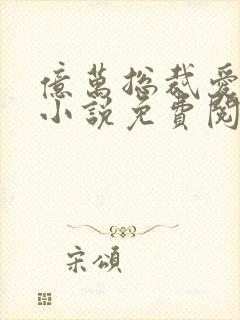 億萬總裁愛
小說免費閱
宋頌